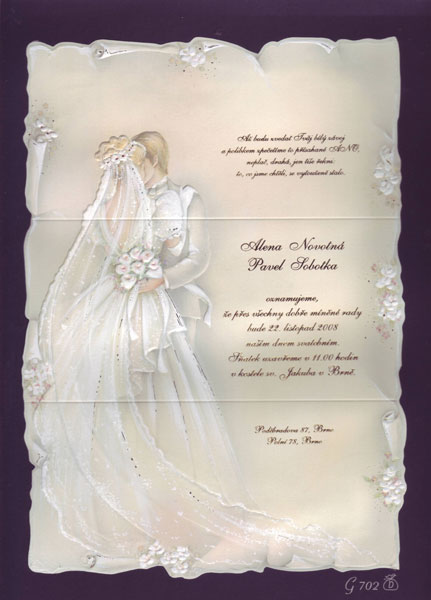 Až budu zvedat Tvůj bílý závoj
a polibkem zpečetíme to přísahané ANO,
neplač, drahá, jen tiše řekni:
to, co jsme chtěli, se vytoužené stalo.
Alena Novotná
Pavel Sobotka
oznamujeme,
že přes všechny dobře míněné rady
bude 22. listopad 2008
naším dnem svatebním.
Sňatek uzavřeme v 11.00 hodin
v kostele sv. Jakuba v Brně.
Poděbradova 87, Brno
Polní 78, Brno
G 702